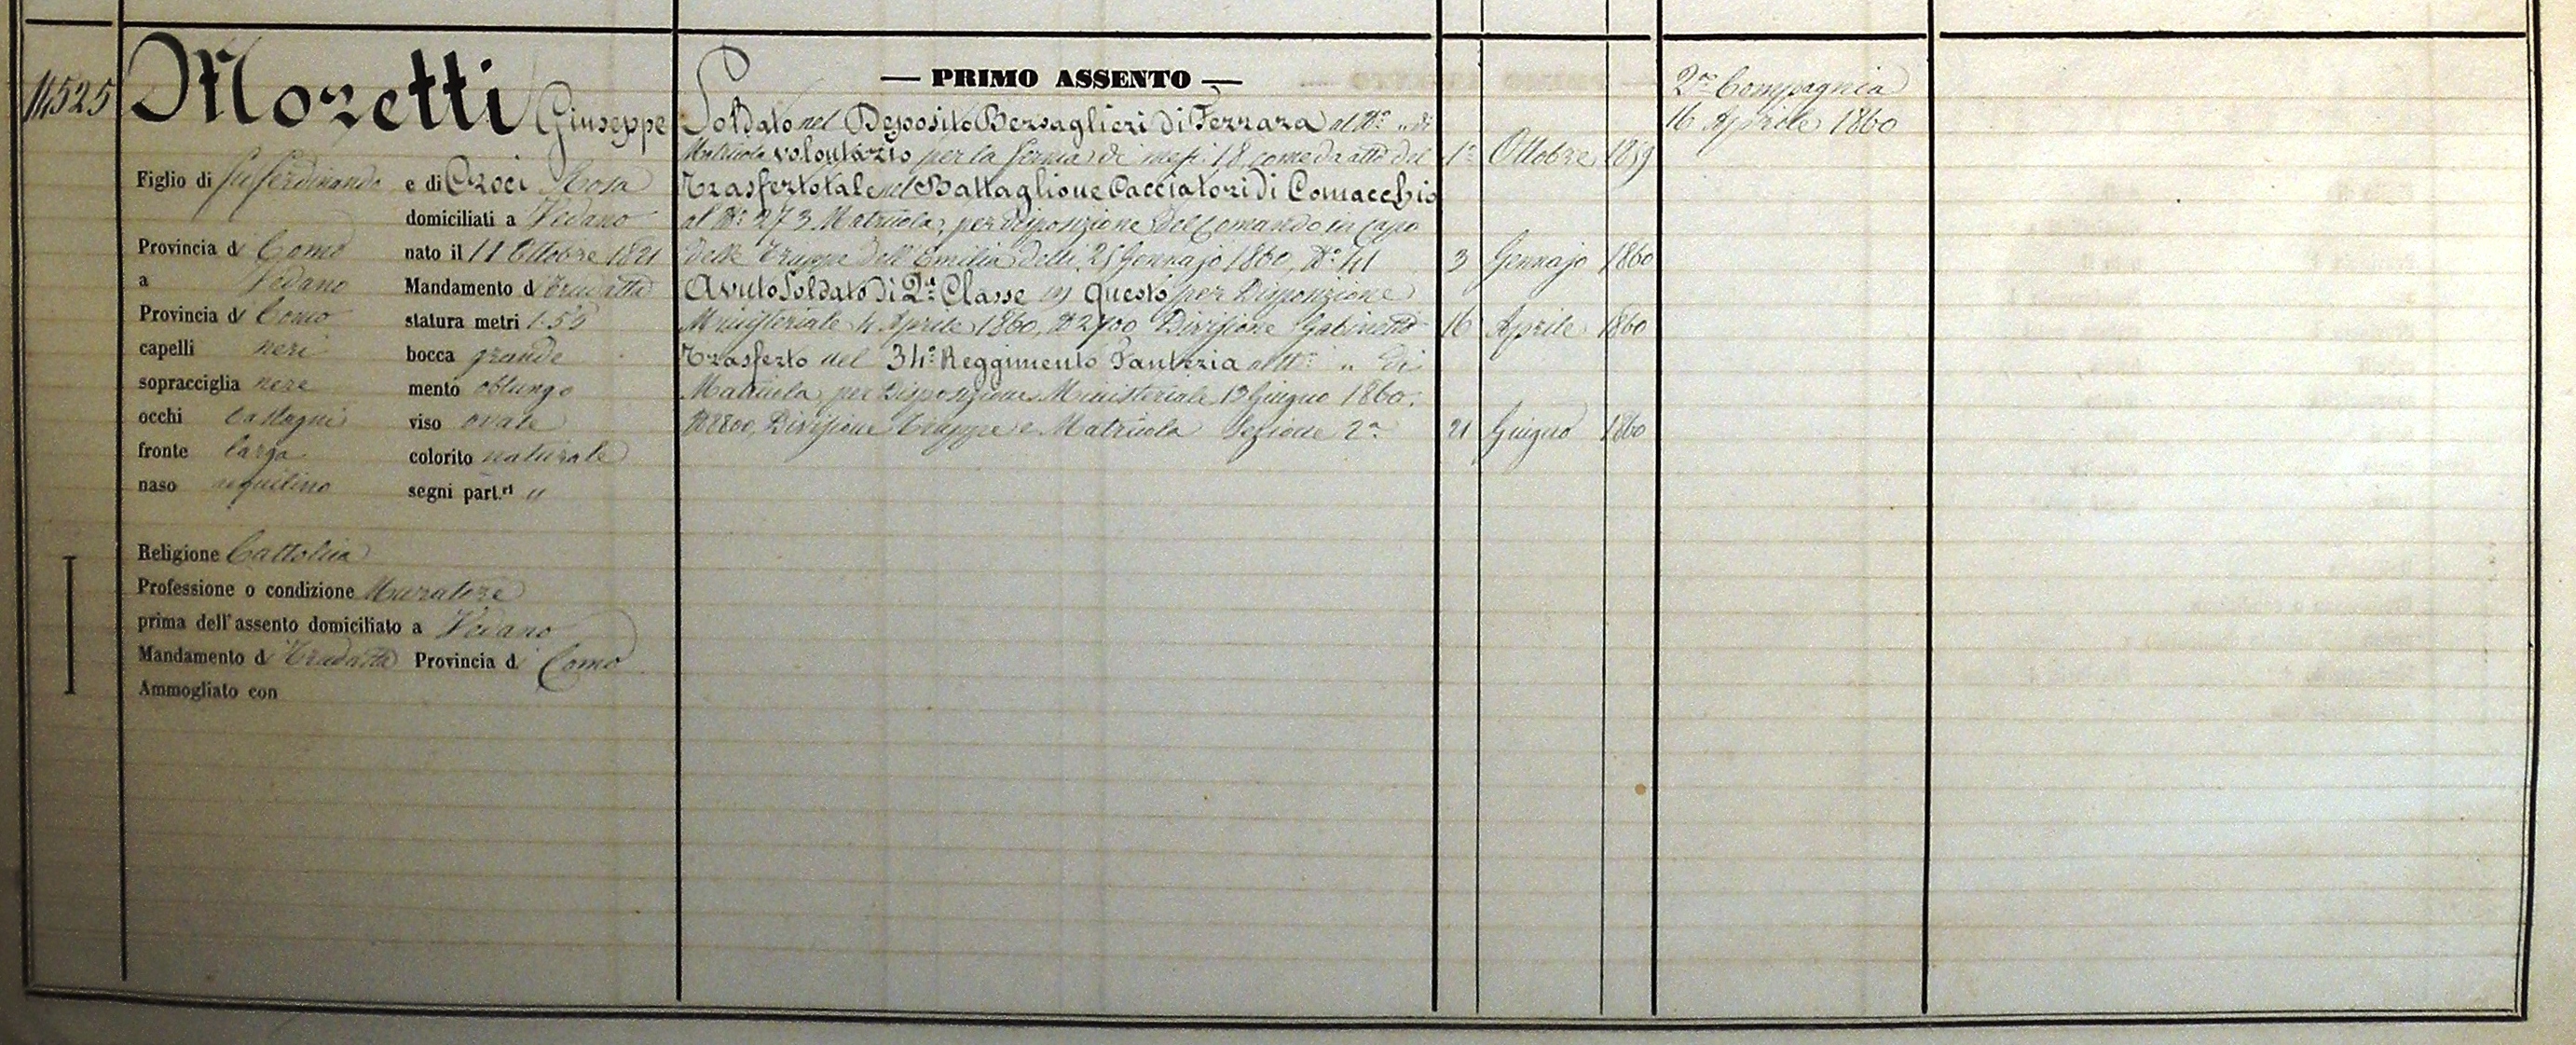 14525
Moretti Giuseppe
Figlio di fu Ferdinando e di Croci Rosa
domiciliati a Vedano
Provincia di Como nato il 11 Ottobre 1821
a Vedano Mandamento di Tradatte
Provincia di Como statura metri 1.55
capelli neri bocca grande
sopracciglia nere mento oblungo
occhi castagni viso ovale
fronte larga colorito naturale
naso aquilino segni part.ri "
Religione Cattolica
Professione o condizione Muratore
prima dell'assento domiciliato a Vedano
Mandamento di Tradatte Provincia di Como
Ammogliato con
— PRIMO ASSENTO —
Soldato nel Deposito Bersaglieri di Ferrara al N.° " di
Matricola volontario per la ferma di mesi 18 come da atto del 1° Ottobre 1859
Trasferto tale nel Battaglione Cacciatori di Comacchio
al N.° 273 Matricola, per disposizione del Comando in capo
delle Truppe dell'Emilia delli 25 Gennajo 1860, N.° 41 3 Gennajo 1860
Avuto Soldato di 2.a Classe in questo per Disposizione
Ministeriale 4 Aprile 1860, N 2700 Divisione Gabinetto 16 Aprile 1860
Trasferto nel 34.° Reggimento Fanteria al N.° " di
Matricola per Disposizione Ministeriale 13 Giugno 1860.
N 8800, Divisione Truppe e Matricola Sezione 2.a 21 Giugno 1860
2.a Compagnia
16 Aprile 1860